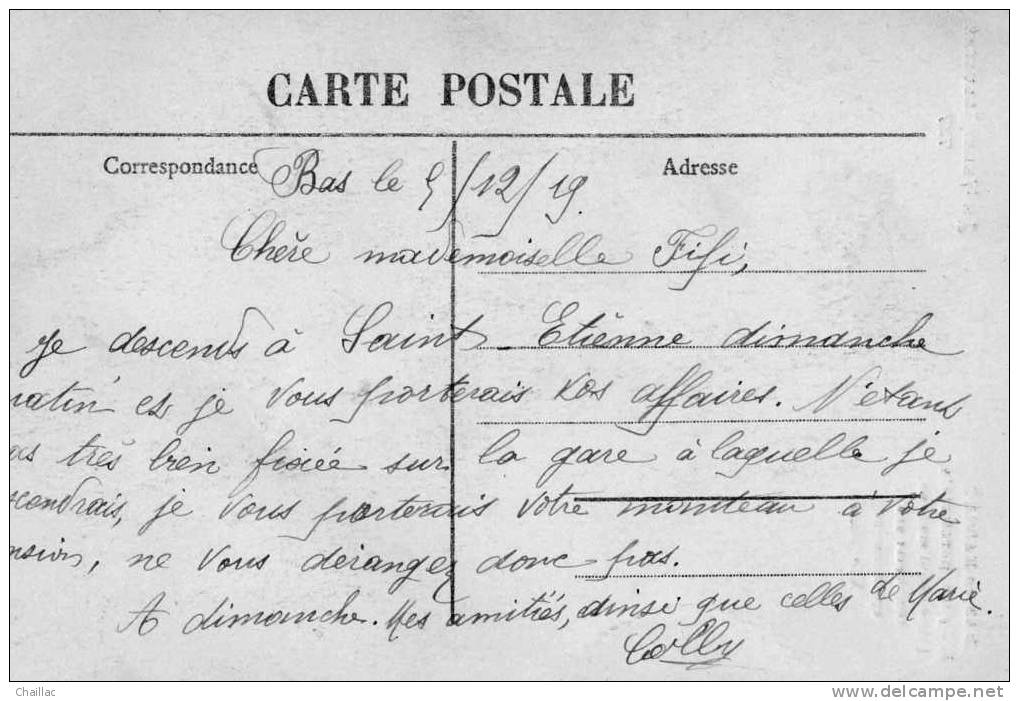 CARTE POSTALE
Correspondance
Adresse
Bas le 5/12/19.
Chère mademoiselle Fifi,
je descends à Saint-Etienne dimanche
matin et je vous porterais vos affaires. N'étant
pas très bien fixée sur la gare à laquelle je
descendrais, je vous porterais votre manteau à votre
pension, ne vous dérangez donc pas.
A dimanche. Mes amitiés, ainsi que celles de Marie.
Chaillac
delcampe.net